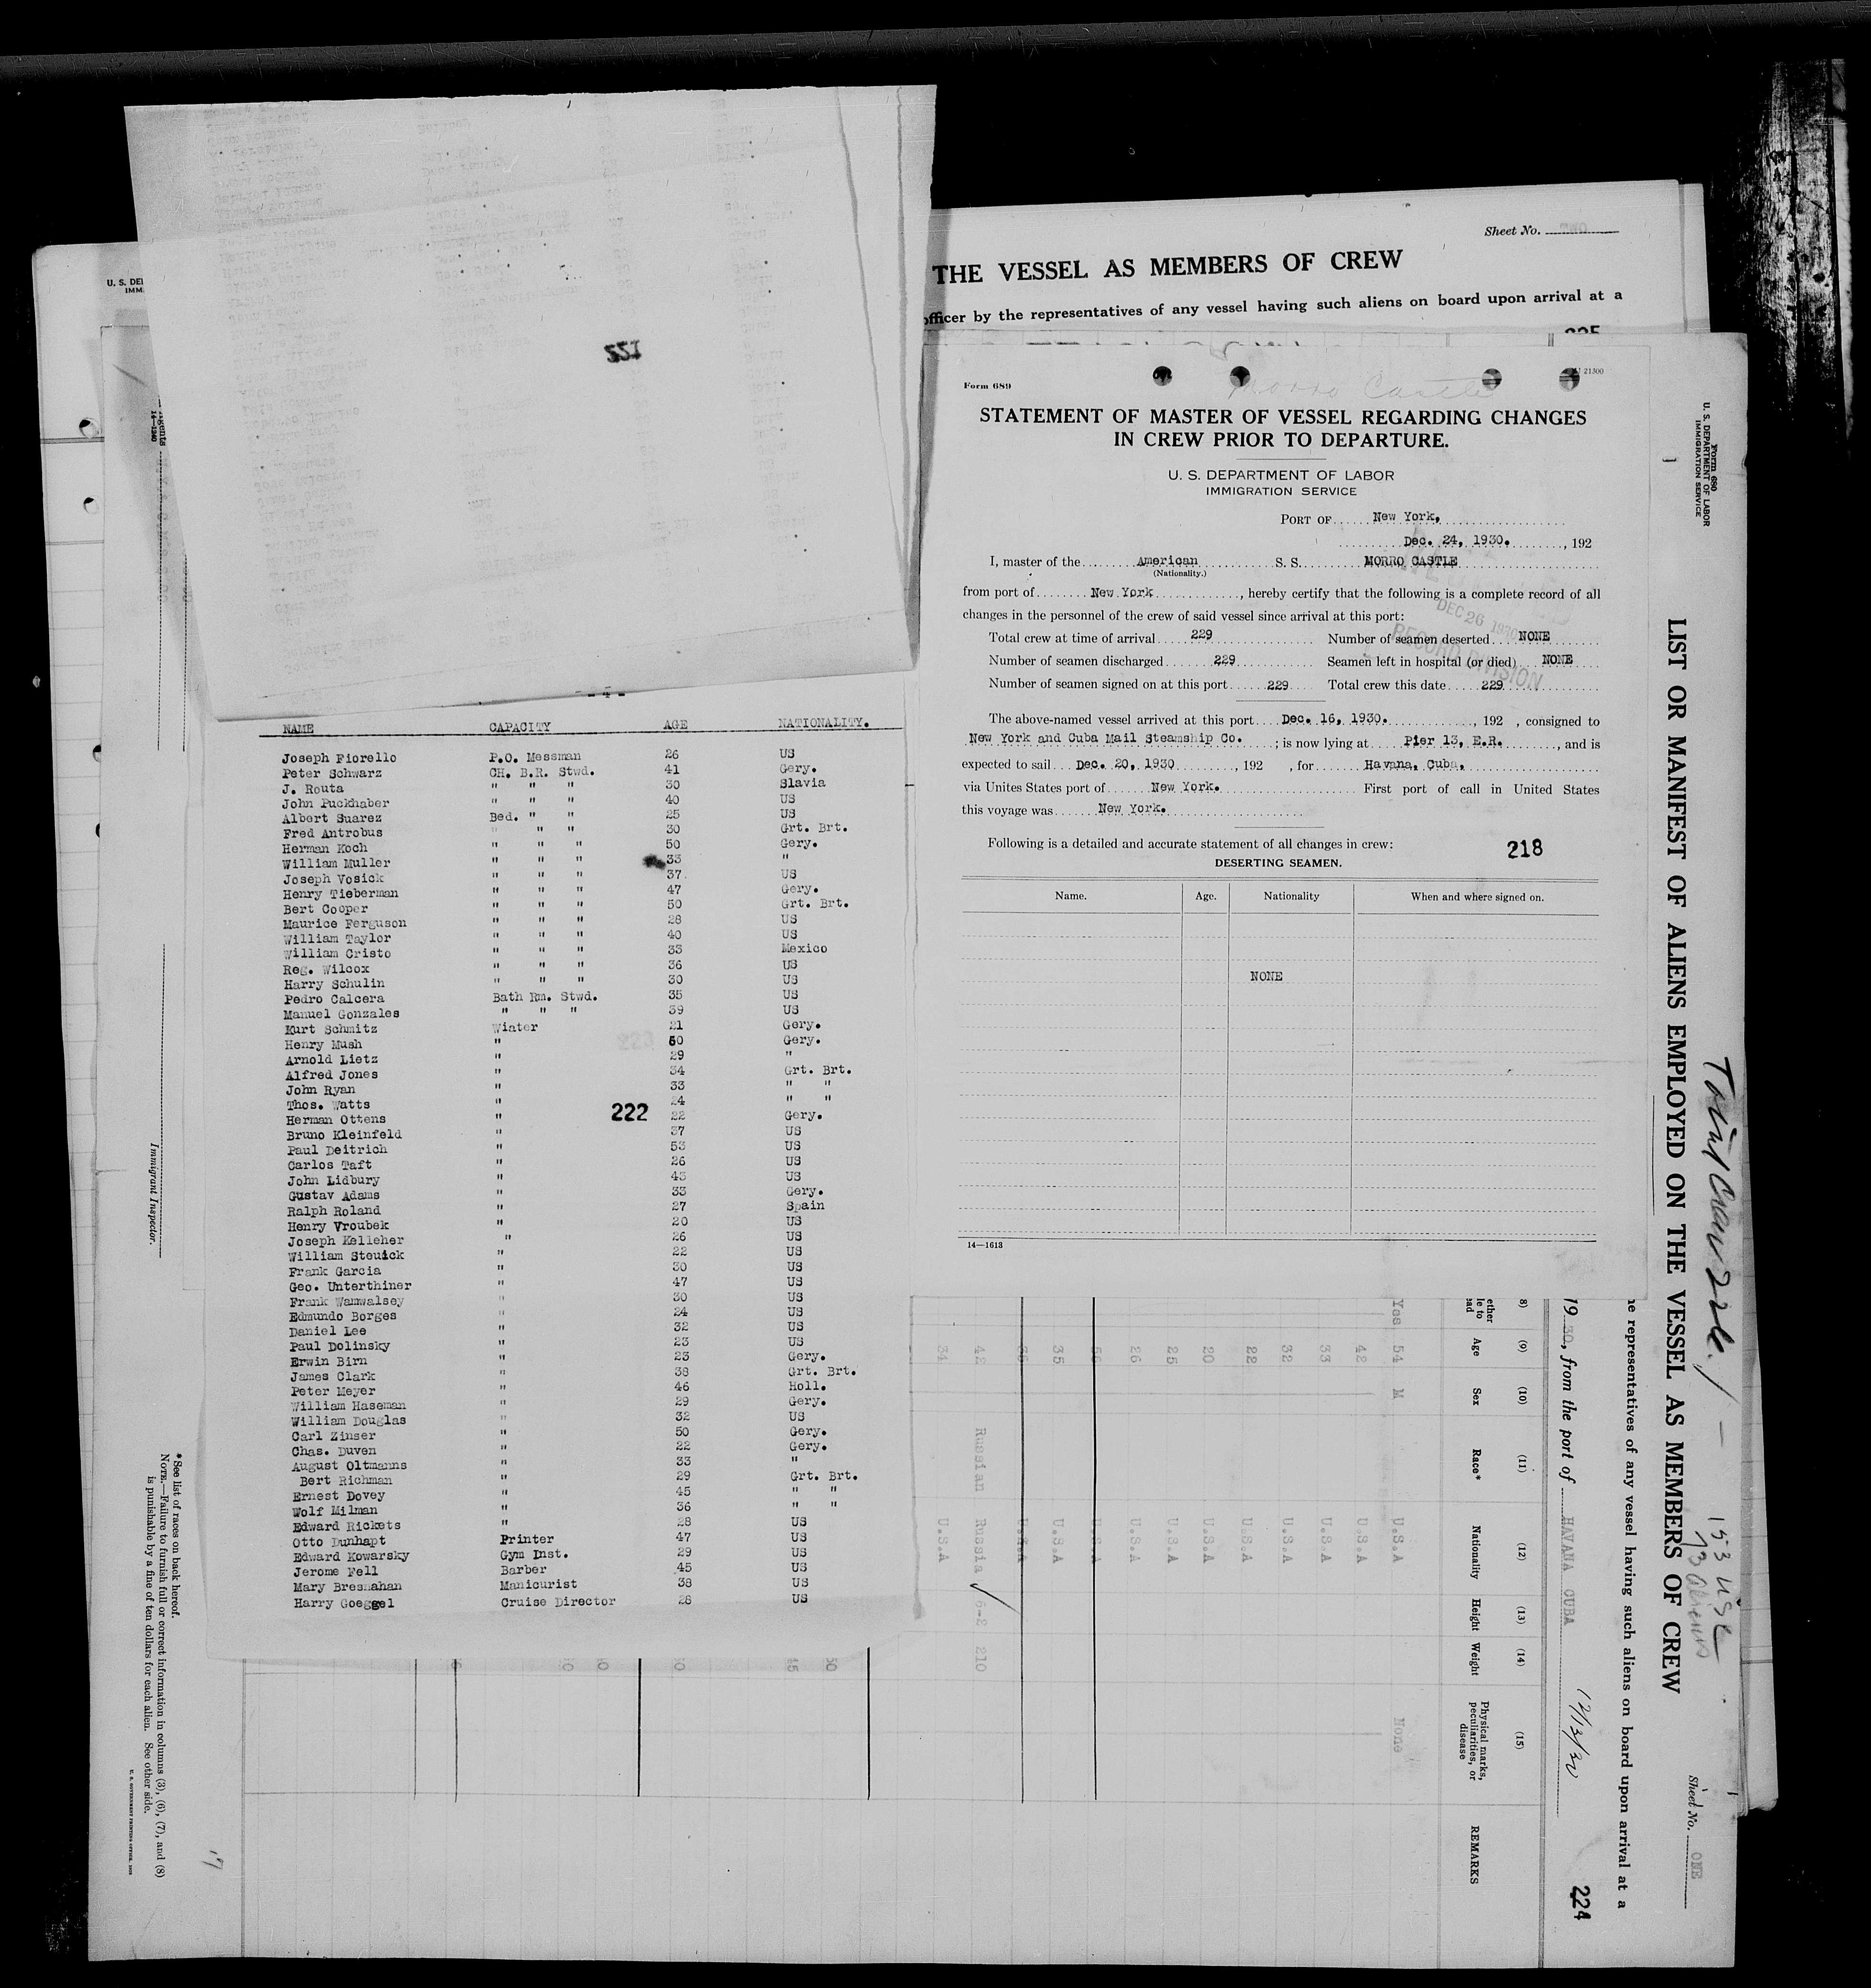 Sheet No.
THE VESSEL AS MEMBERS OF CREW
officer by the representatives of any vessel having such aliens on board upon arrival at a
221
U. S. DE
IMM
- 4 -
NAME CAPACITY AGE NATIONALITY.
Joseph Fiorello P.O. Messman 26 US
Peter Schwarz CH. B.R. Stwd. 41 Gery.
J. Routa " " " 30 Slavia
John Puckhaber " " " 40 US
Albert Suarez Bed. " " 25 US
Fred Antrobus " " " 30 Grt. Brt.
Herman Koch " " " 50 Gery.
William Muller " " " 33 "
Joseph Vosick " " " 37 US
Henry Tieberman " " " 47 Gery.
Bert Cooper " " " 50 Grt. Brt.
Maurice Ferguson " " " 28 US
William Taylor " " " 40 US
William Cristo " " " 33 Mexico
Reg. Wilcox " " " 36 US
Harry Schulin " " " 30 US
Pedro Calcera Bath Rm. Stwd. 35 US
Manuel Gonzales " " " 39 US
Kurt Schmitz Wiater 21 Gery.
Henry Mush " 50 Gery.
Arnold Lietz " 29 "
Alfred Jones " 34 Grt. Brt.
John Ryan " 33 " "
Thos. Watts " 24 " "
222
Herman Ottens " 22 Gery.
Bruno Kleinfeld " 37 US
Paul Deitrich " 53 US
Carlos Taft " 26 US
John Lidbury " 43 US
Gustav Adams " 33 Gery.
Ralph Roland " 27 Spain
Henry Vroubek " 20 US
Joseph Kelleher " 26 US
William Steuick " 22 US
Frank Garcia " 30 US
Geo. Unterthiner " 47 US
Frank Wamwalsey " 30 US
Edmundo Borges " 24 US
Daniel Lee " 32 US
Paul Dolinsky " 23 US
Erwin Birn " 23 Gery.
James Clark " 38 Grt. Brt.
Peter Meyer " 46 Holl.
William Haseman " 29 Gery.
William Douglas " 32 US
Carl Zinser " 50 Gery.
Chas. Duven " 22 Gery.
August Oltmanns " 33 "
Bert Richman " 29 Grt. Brt.
Ernest Dovey " 45 " "
Wolf Milman " 36 " "
Edward Rickets " 28 US
Otto Dunhapt Printer 47 US
Edward Kowarsky Gym Inst. 29 US
Jerome Fell Barber 45 US
Mary Bresnahan Manicurist 38 US
Harry Goeggel Cruise Director 28 US
Form 689
Morro Castle
21300
STATEMENT OF MASTER OF VESSEL REGARDING CHANGES
IN CREW PRIOR TO DEPARTURE.
U. S. DEPARTMENT OF LABOR
IMMIGRATION SERVICE
PORT OF New York,
Dec. 24, 1930. , 192
I, master of the American S. S. MORRO CASTLE
(Nationality.)
from port of New York , hereby certify that the following is a complete record of all
changes in the personnel of the crew of said vessel since arrival at this port:
DEC 26 1930
RECORD DIVISION
Total crew at time of arrival 229 Number of seamen deserted NONE
Number of seamen discharged 229 Seamen left in hospital (or died) NONE
Number of seamen signed on at this port 229 Total crew this date 229
The above-named vessel arrived at this port Dec. 16, 1930. , 192 , consigned to
New York and Cuba Mail Steamship Co. ; is now lying at Pier 13, E.R. , and is
expected to sail Dec. 20, 1930 , 192 , for Havana, Cuba,
via Unites States port of New York. First port of call in United States
this voyage was New York.
Following is a detailed and accurate statement of all changes in crew: 218
DESERTING SEAMEN.
Name. Age. Nationality When and where signed on.
NONE
14—1613
Form 680
U. S. DEPARTMENT OF LABOR
IMMIGRATION SERVICE
LIST OR MANIFEST OF ALIENS EMPLOYED ON THE VESSEL AS MEMBERS OF CREW
Sheet No. ONE
153 USC
e representatives of any vessel having such aliens on board upon arrival at a
19 30, from the port of HAVANA CUBA 12/13/30
224
(9) (10) (11) (12) (13) (14) (15)
Age Sex Race* Nationality Height Weight Physical marks, peculiarities, or disease REMARKS
Yes 54 M U.S.A None
42 U.S.A
33 U.S.A
32 U.S.A
22 U.S.A
20 U.S.A
25 U.S.A
26 U.S.A
35 U.S.A
42 Russian Russia 6-2 210
34 U.S.A
14—1240
Immigrant Inspector.
* See list of races on back hereof.
NOTE.—Failure to furnish full or correct information in columns (3), (6), (7), and (8)
is punishable by a fine of ten dollars for each alien. See other side.
U. S. GOVERNMENT PRINTING OFFICE